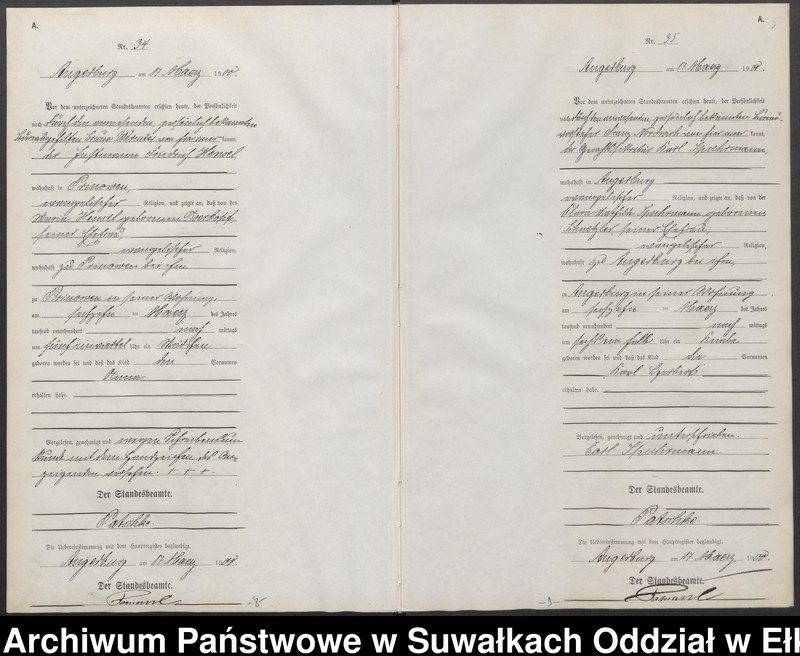 A.
Nr. 34
Angerburg am 17 Maerz 1900.
Vor dem unterzeichneten Standesbeamten erschien heute, der Persönlichkeit
nach durch den anwesenden, persönlich bekannten
kannt,
der Instmann Friedrich Hensel,
wohnhaft in Prinowen,
evangelischer Religion, und zeigte an, daß von der
Hensel geborenen
seiner Ehefrau,
evangelischer Religion,
wohnhaft zu Prinowen bei ihm,
zu Prinowen in seiner Wohnung,
am sechzehn ten Maerz des Jahres
tausend neunhundert nach mittags
um fünf einviertel Uhr ein Mädchen
geboren worden sei und daß das Kind den Vornamen
Anna
erhalten habe.
Vorgelesen, genehmigt und wegen Schreibensun-
kunde mit dem Handzeichen des An-
zeigenden versehen. + + +.
Der Standesbeamte.
Patschke.
Die Uebereinstimmung mit dem Hauptregister beglaubigt.
Angerburg am 17. Maerz 1900.
Der Standesbeamte.
A.
Nr. 35
Angerburg am 17 Maerz 1900.
Vor dem unterzeichneten Standesbeamten erschien heute, der Persönlichkeit
nach durch den anwesenden, persönlich bekannten Bureau-
vorsteher Franz kannt,
der Gerichtssekretär Karl Spuhrmann,
wohnhaft in Angerburg
evangelischer Religion, und zeigte an, daß von der
Clara Mathilde Spuhrmann geborenen
seiner Ehefrau,
evangelischer Religion,
wohnhaft zu Angerburg bei ihm,
zu Angerburg in seiner Wohnung
am sechzehn ten Maerz des Jahres
tausend neunhundert nach mittags
um sechs ein halb Uhr ein Knabe
geboren worden sei und daß das Kind die Vornamen
Karl Herbert
erhalten habe.
Vorgelesen, genehmigt und unterschrieben.
Carl Spuhrmann
Der Standesbeamte.
Patschke.
Die Uebereinstimmung mit dem Hauptregister beglaubigt.
Angerburg am 17. Maerz 1900.
Der Standesbeamte.
Archiwum Państwowe w Suwałkach Oddział w Ełk